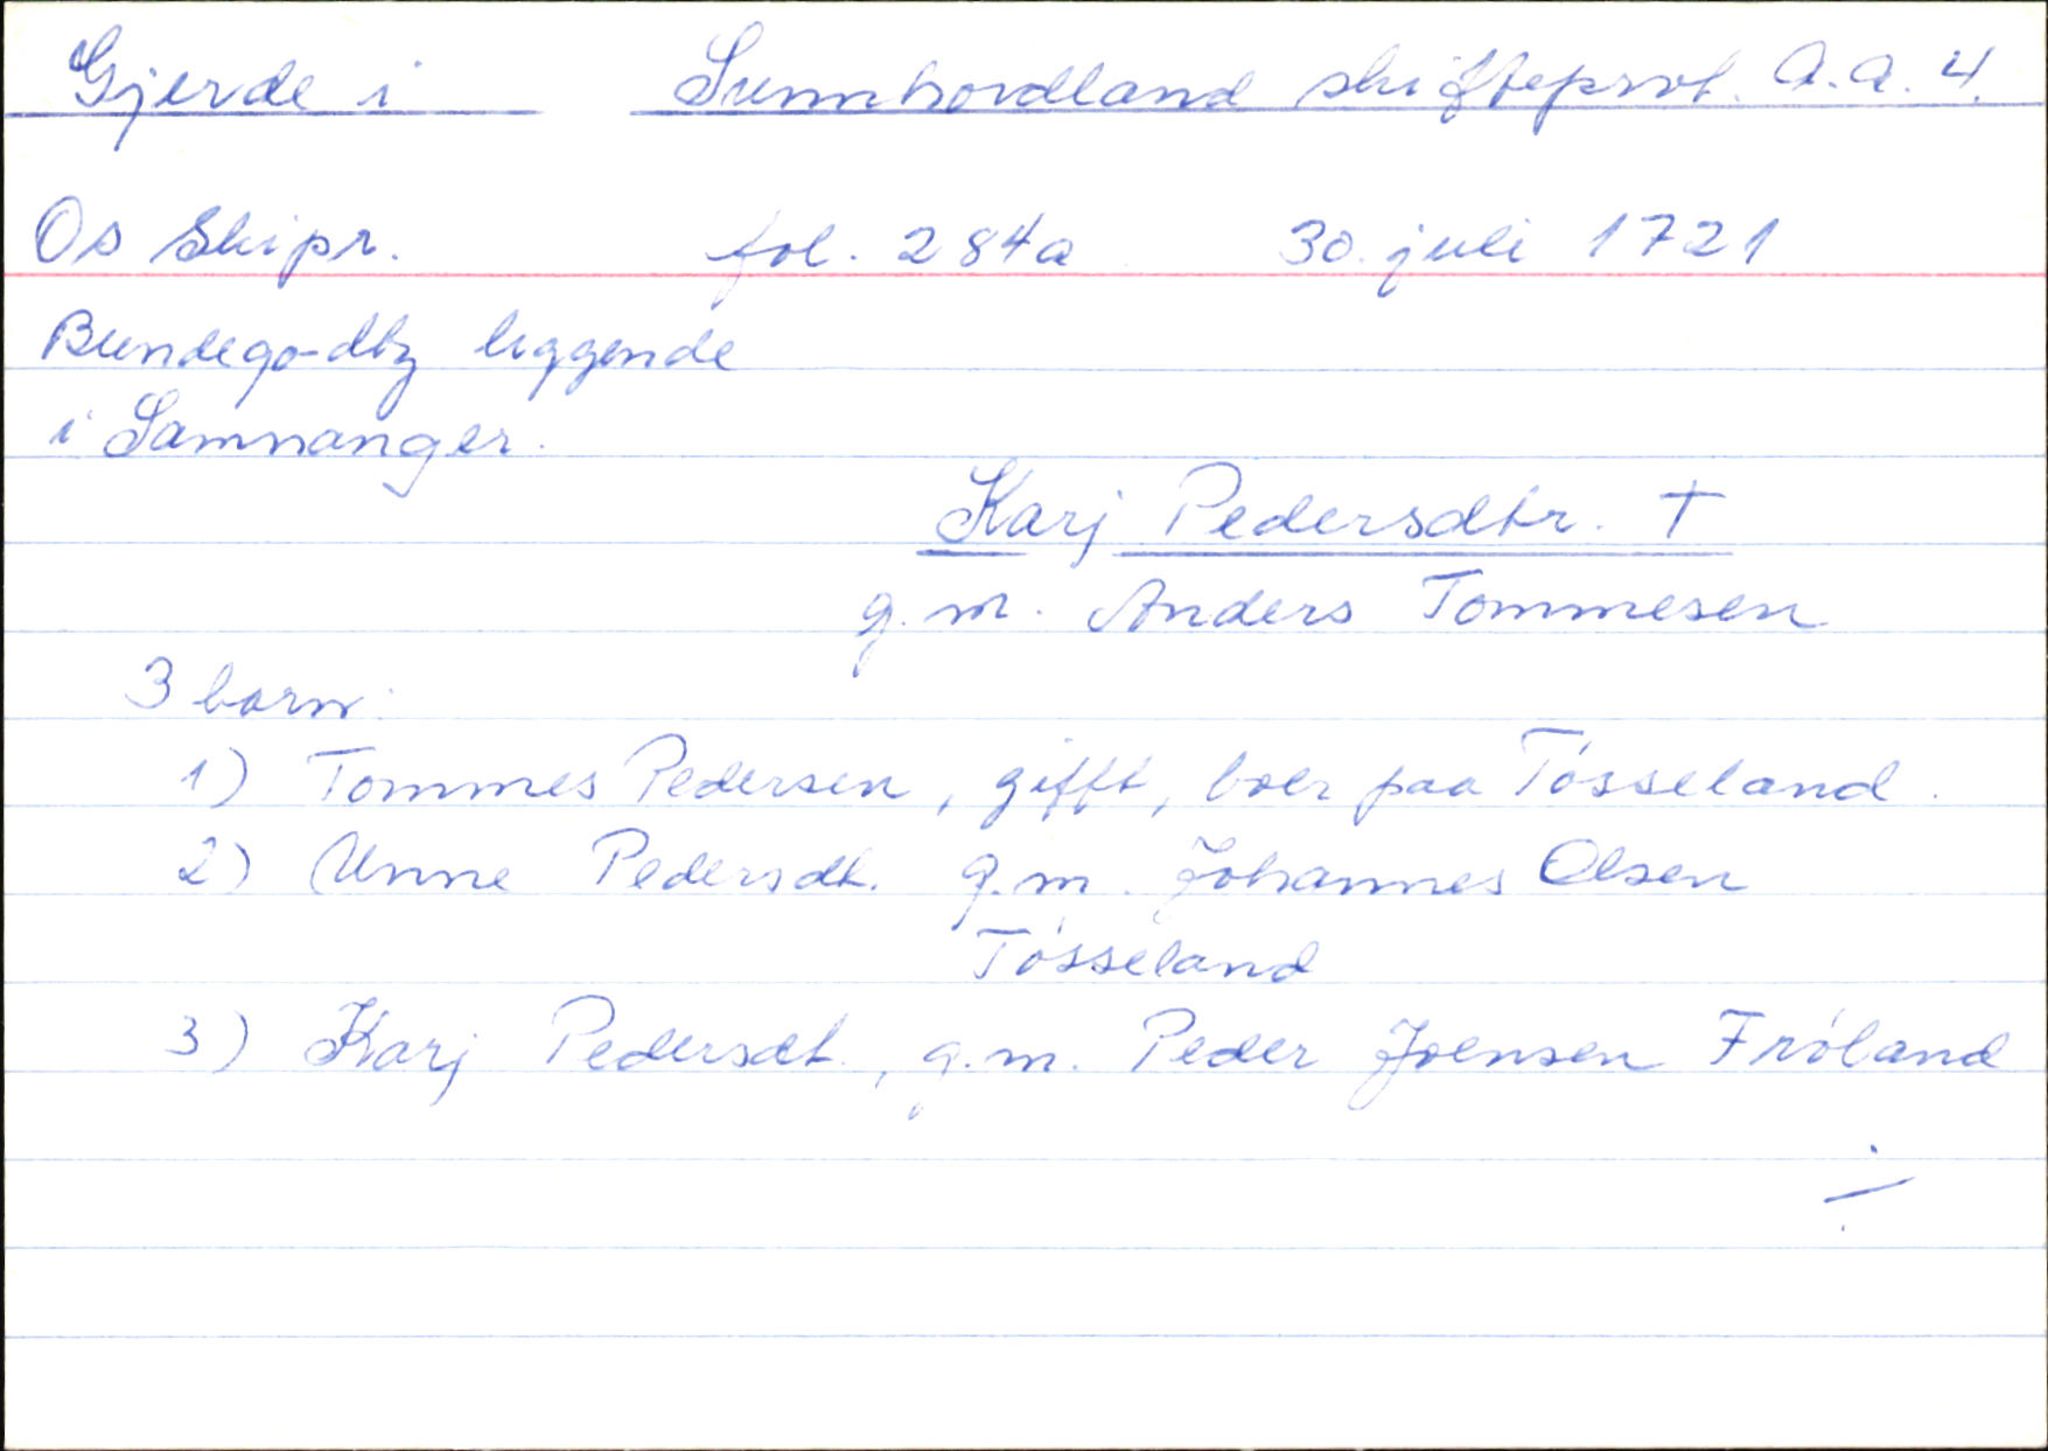 Gjerde i Sunnhordland skifteprot. A.a. 4.
Os Skipr. fol. 284a 30. juli 1721
liggende
i Samnanger.
Karj Pedersdtr. †
g.m. Anders Tommesen
3 born:
1) Tommes Pedersen, gifft, boer paa Tösseland.
2) Unne Pedersdt. g.m. Johannes Olsen
Tösseland
3) Karj Pedersdt., g.m. Peder Joensen Fröland